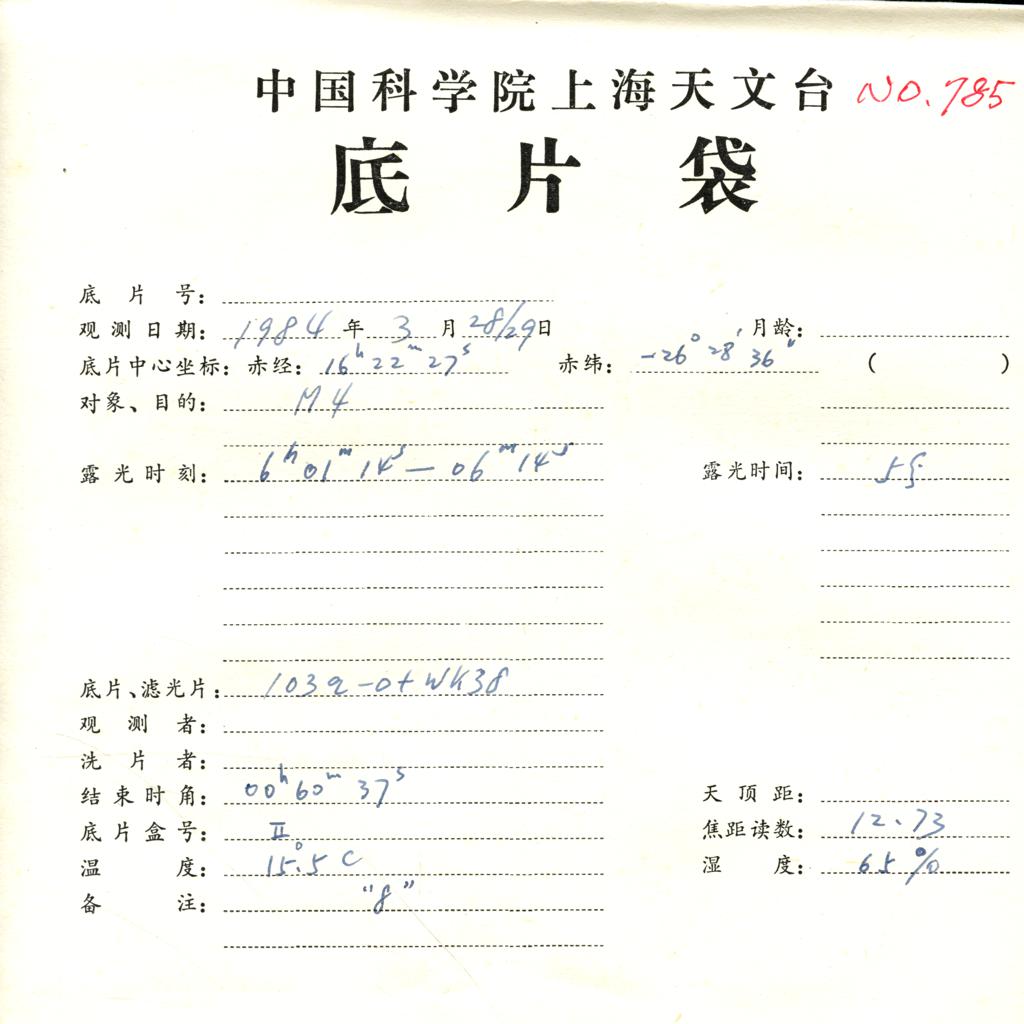 中国科学院上海天文台 NO.785
底片袋
底片号：
观测日期：1984年3月28/29日 月龄：
底片中心坐标：赤经：16h22m27s 赤纬：-26°28′36″ ( )
对象、目的：M4
露光时刻：6h01m14s—06m14s 露光时间：5分
底片、滤光片：103a-O+WK38
观测者：
洗片者：
结束时角：00h60m37s 天顶距：
底片盒号：II 焦距读数：12.73
温度：15°.5C 湿度：65%
备注：“8”